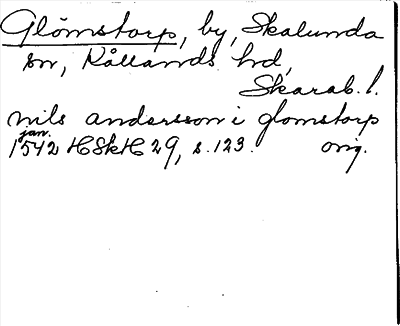 Glömstorp, by, Skalunda
sn, Kållands hd,
Skarab. l.
nils andersson i glomstorp
jan.
1542 HSkH 29, s. 123. orig.